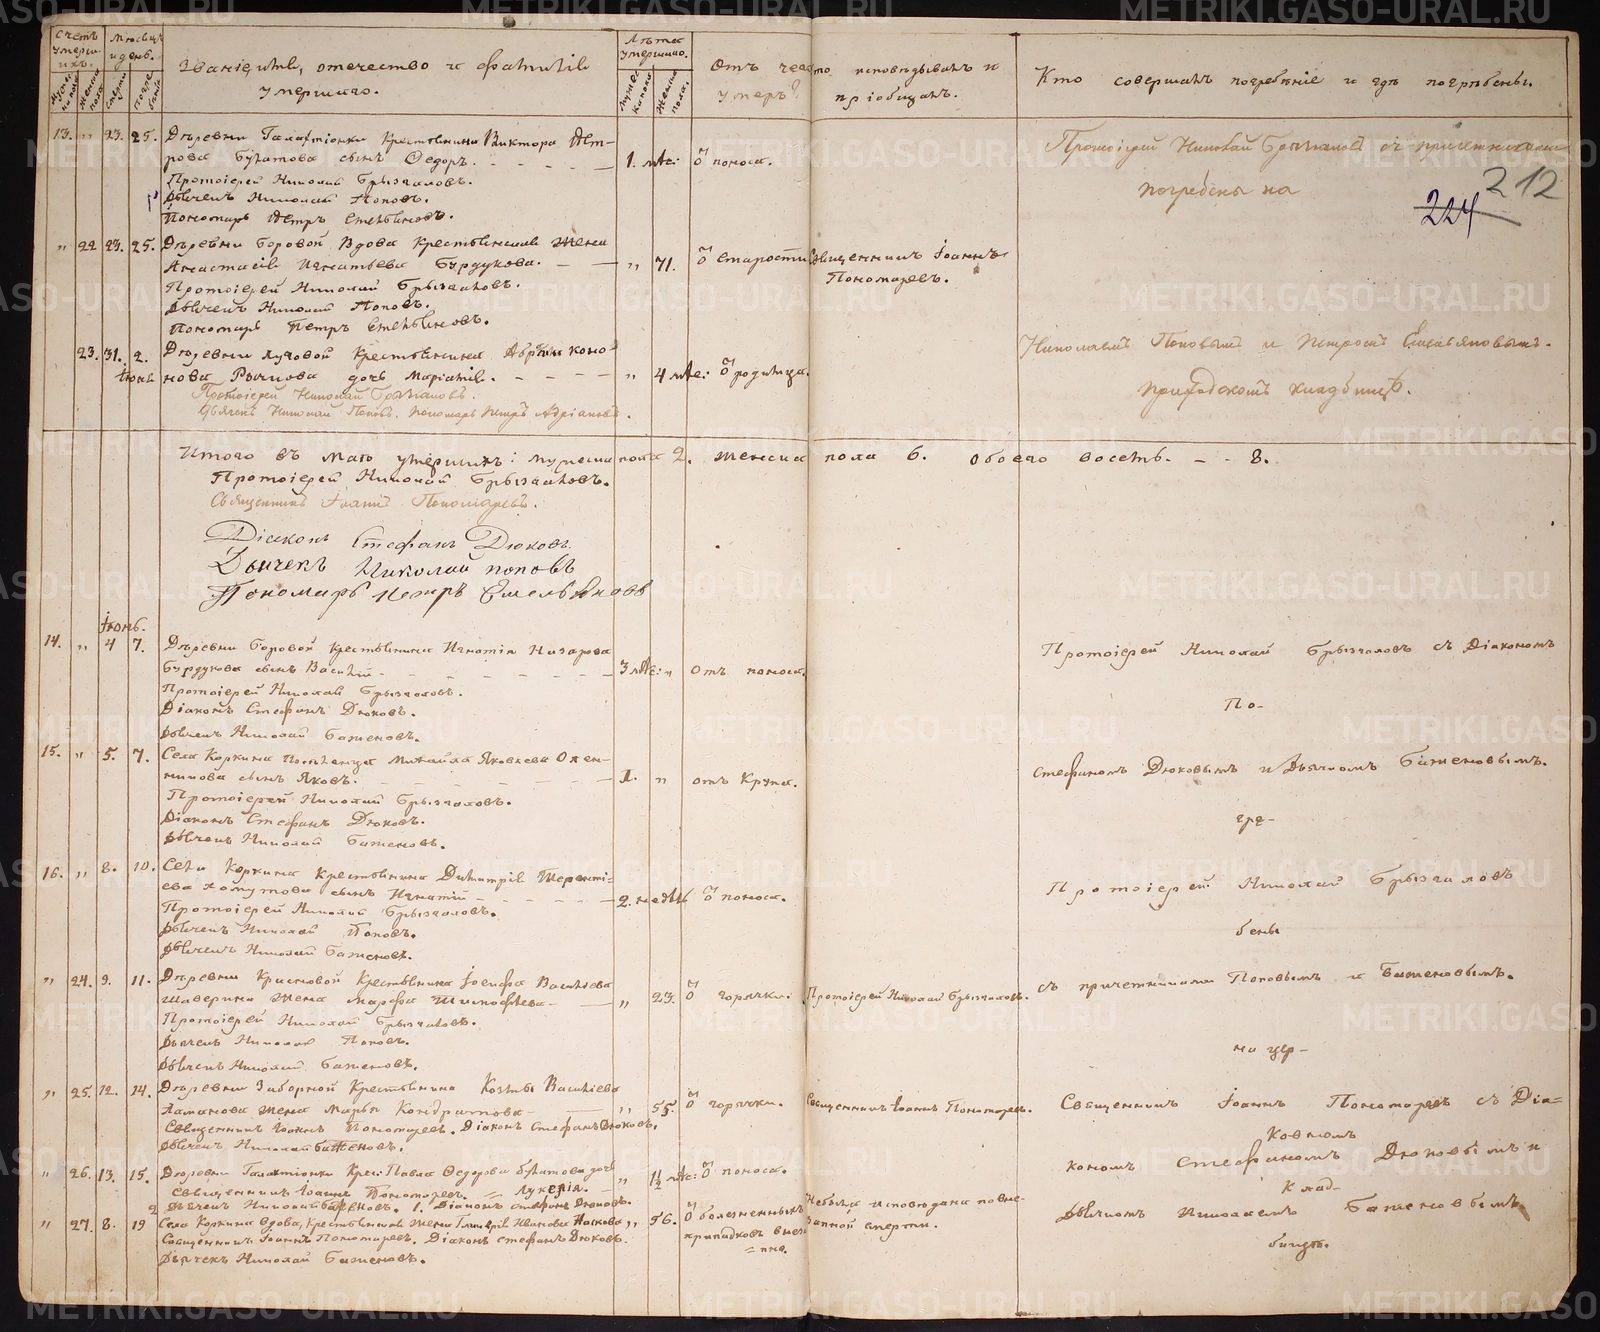 Счетъ умерш-ихъ.
Мужеска пола
Женска пола
Мѣсяцъ и день.
Смерти
Погребенія
Званіе, имя, отечество и фамилія
умершаго.
Лѣта умершаго.
Мужеска пола
Женска пола.
Отъ чего
умеръ?
Кто исповѣдывалъ и
пріобщалъ.
Кто совершалъ погребеніе и гдѣ погребены.
13. „ 23. 25. Деревни Галактіонки Крестьянина Виктора Пет-
рова Булатова сынъ Ѳедоръ. 1. мѣс: ѿ поноса.
Протоіерей Николай Брызгаловъ.
Дьячекъ Николай Поповъ.
Пономарь Петръ Емельяновъ.
Протоіерей Николай Брызгаловъ съ причетниками
погребены на
212
224
„ 22 23. 25. Деревни Боровой Вдова Крестьянская Жена
Анастасія Игнатьева Бурдукова. „ 71. ѿ старости Священникъ Іоаннъ
Пономаревъ.
Протоіерей Николай Брызгаловъ.
Дьячекъ Николай Поповъ.
Пономарь Петръ Емельяновъ.
23. 31. 2. Деревни Луговой Крестьянина
Іюня нова дочь „ 4 мѣс: ѿ родимца.
Протоіерей Николай Брызгаловъ.
Дьячекъ Николай Поповъ. Пономарь Петръ
Николаемъ Поповымъ и Петромъ Емельяновымъ.
приходскомъ кладбищѣ.
Итого въ маѣ умершихъ: мужеска пола 2. женска пола 6. Обоего восемь. - - 8.
Протоіерей Николай Брызгаловъ.
Священникъ Іоаннъ Пономаревъ.
Діаконъ Стефанъ Дюковъ.
Дьячекъ Николай Поповъ
Пономарь Петръ Емельяновъ
Іюнь.
14. „ 4 7. Деревни Боровой Крестьянина Игнатія Назарова
Бурдукова сынъ Василій 3 мѣс: „ отъ поноса.
Протоіерей Николай Брызгаловъ.
Діаконъ Стефанъ Дюковъ.
Дьячекъ Николай Баженовъ.
Протоіерей Николай Брызгаловъ съ Діакономъ
По-
15. „ 5. 7. Села Коркина Михайла Яковлева Олен-
никова сынъ Яковъ. 1. „ отъ Крупа.
Протоіерей Николай Брызгаловъ.
Діаконъ Стефанъ Дюковъ.
Дьячекъ Николай Баженовъ.
Стефаномъ Дюковымъ и Дьячкомъ Баженовымъ.
гре-
16. „ 8. 10. Села Коркина Крестьянина Димитрія Теренті-
ева Хомутова сынъ Игнатій 2. недѣл ѿ поноса.
Протоіерей Николай Брызгаловъ.
Дьячекъ Николай Поповъ.
Дьячекъ Николай Баженовъ.
Протоіерей Николай Брызгаловъ
бены
„ 24. 9. 11. Деревни Красновой Крестьянина Іосифа Василіева
Шаверина Жена Марфа Тимофѣева „ 23. ѿ горячки. Протоіерей Николай Брызгаловъ.
Протоіерей Николай Брызгаловъ.
Дьячекъ Николай Поповъ.
Дьячекъ Николай Баженовъ.
съ причетниками Поповымъ и Баженовымъ.
на цер-
„ 25. 12. 14. Деревни Заборной Крестьянина Козьмы Василіева
Жена Марья Кондратова „ 55. ѿ горячки. Священникъ Іоаннъ Пономаревъ.
Священникъ Іоаннъ Пономаревъ. Діаконъ Стефанъ Дюковъ.
Дьячекъ Николай Баженовъ.
Священникъ Іоаннъ Пономаревъ съ Діа-
ковномъ
„ 26. 13. 15. Деревни Галактіонки Крес: Павла Ѳедорова Булатова дочь
Лукерія. „ 1½ мѣс: ѿ поноса.
Священникъ Іоаннъ Пономаревъ.
2 Дьячекъ Николай Баженовъ. 1. Діаконъ Стефанъ Дюковъ.
кономъ Стефаномъ Дюковымъ и
клад-
„ 27. 8. 19 Села Коркина вдова, Крестьянская Жена Гликерія Иванова „ 56. ѿ болезненныхъ
припадковъ внез-
=пно.
Небыла исповѣдана по вне-
запной смерти.
Священникъ Іоаннъ Пономаревъ. Діаконъ Стефанъ Дюковъ.
Дьячекъ Николай Баженовъ.
Дьячкомъ Николаемъ Баженовымъ
бищѣ.
METRIKI.GASO-URAL.RU